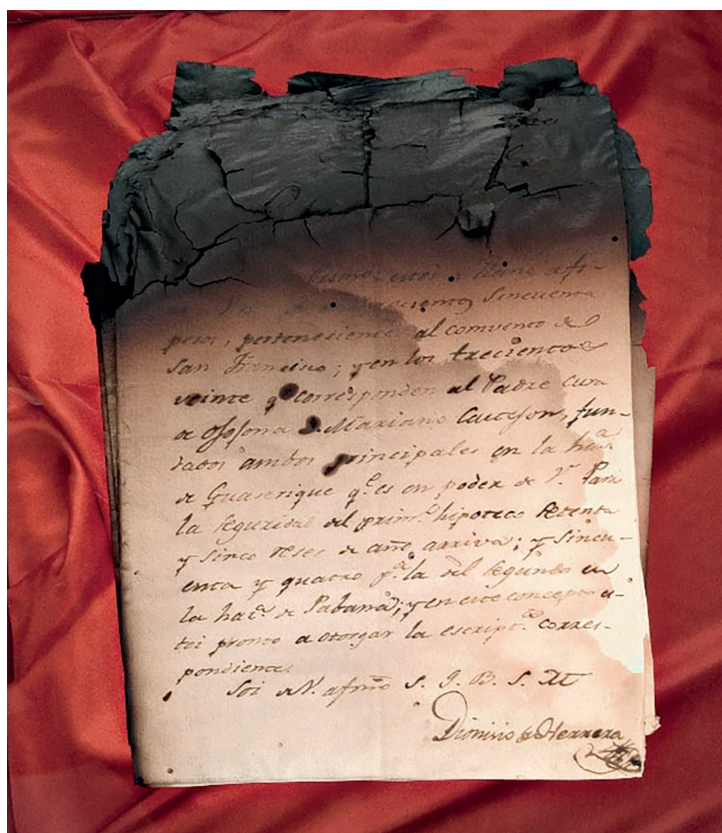 sumo, estoi
cientos sincuenta
pesos, pertenesiente al comvento de
San Francisco; y en los treciento
veinte qe. corresponden al Padre Cura
de Ojojona D. Mariano Castejon, fun-
dados ambos principales en la hazda.
de Guaserique qe. es en poder de V. Para
la seguridad del primo. hipoteco setenta
y sinco reses de año arriva; y sincu-
enta y quatro pa. la del segundo en
la hazda. de Sabana; y en este concepto es-
toi pronto a otorgar la escripta. corres-
pondiente.
Soi de V. afmo S. S. Q. B. S. M
Dionisio de Herrera